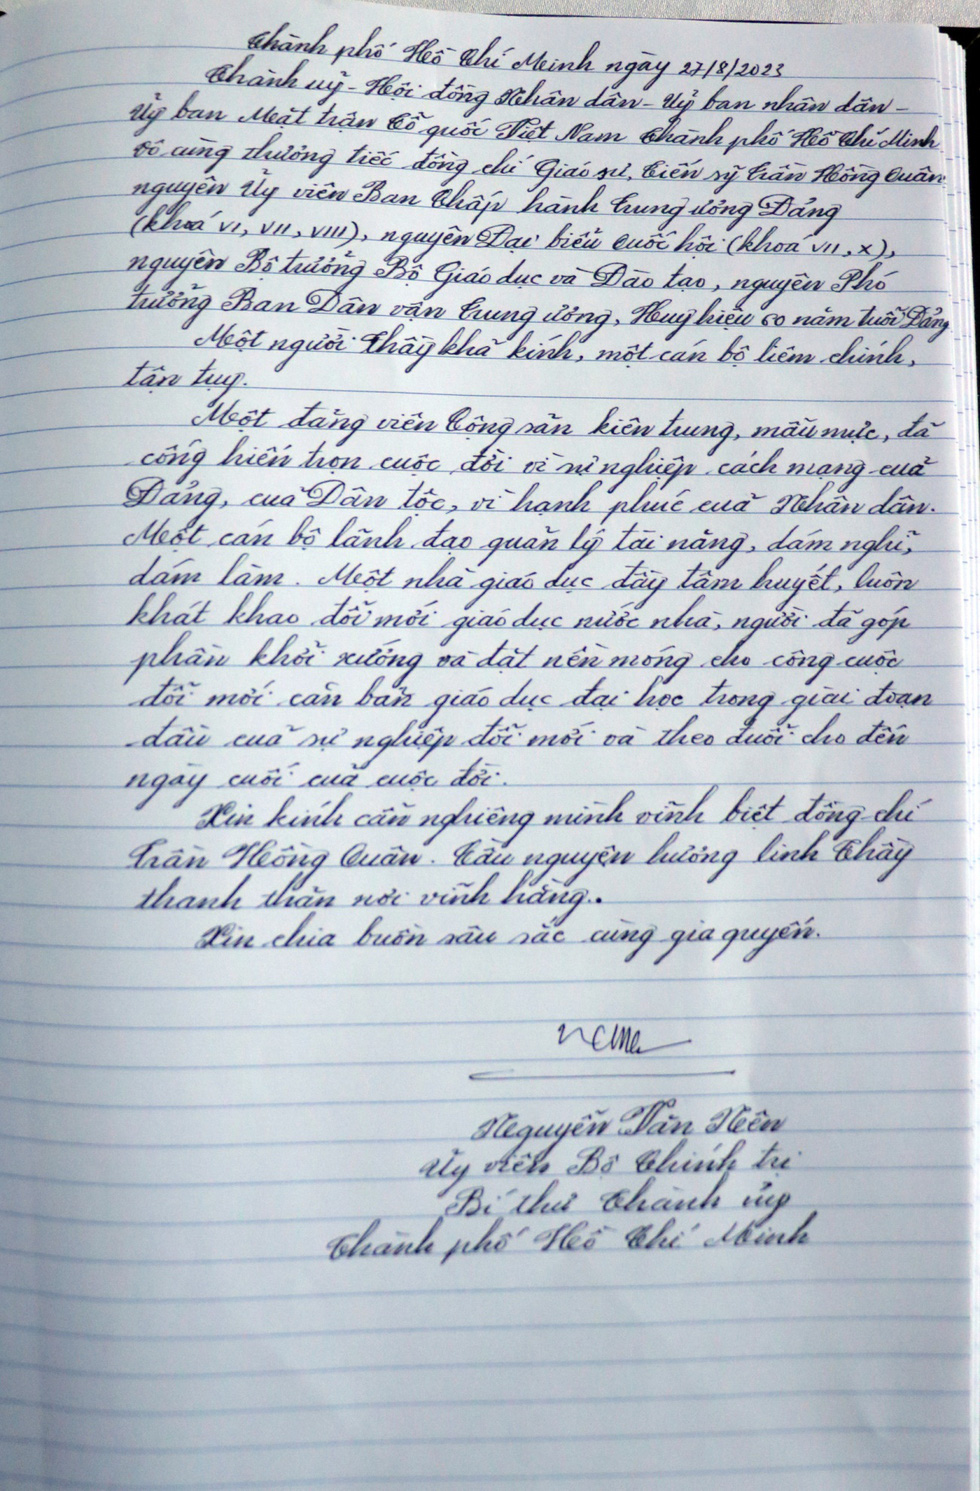 Thành phố Hồ Chí Minh ngày 27/8/2023
Thành uỷ - Hội đồng Nhân dân - Uỷ ban nhân dân -
Uỷ ban Mặt trận Tổ quốc Việt Nam Thành phố Hồ Chí Minh
vô cùng thương tiếc đồng chí Giáo sư, Tiến sỹ Trần Hồng Quân
nguyên Ủy viên Ban Chấp hành Trung ương Đảng
(khoá VI, VII, VIII), nguyên Đại biểu Quốc hội (khoá VII, X),
nguyên Bộ trưởng Bộ Giáo dục và Đào tạo, nguyên Phó
trưởng Ban Dân vận Trung ương, Huy hiệu 60 năm tuổi Đảng
Một người Thầy khả kính, một cán bộ liêm chính,
tận tụy.
Một đảng viên Cộng sản kiên trung, mẫu mực, đã
cống hiến trọn cuộc đời vì sự nghiệp cách mạng của
Đảng, của Dân tộc, vì hạnh phúc của Nhân dân.
Một cán bộ lãnh đạo quản lý tài năng, dám nghĩ,
dám làm. Một nhà giáo dục đầy tâm huyết, luôn
khát khao đổi mới giáo dục nước nhà, người đã góp
phần khởi xướng và đặt nền móng cho công cuộc
đổi mới căn bản giáo dục đại học trong giai đoạn
đầu của sự nghiệp đổi mới và theo đuổi cho đến
ngày cuối của cuộc đời.
Xin kính cẩn nghiêng mình vĩnh biệt đồng chí
Trần Hồng Quân. Cầu nguyện hương linh Thầy
thanh thản nơi vĩnh hằng..
Xin chia buồn sâu sắc cùng gia quyến.
Nguyễn Văn Nên
Ủy viên Bộ Chính trị
Bí thư Thành ủy
Thành phố Hồ Chí Minh